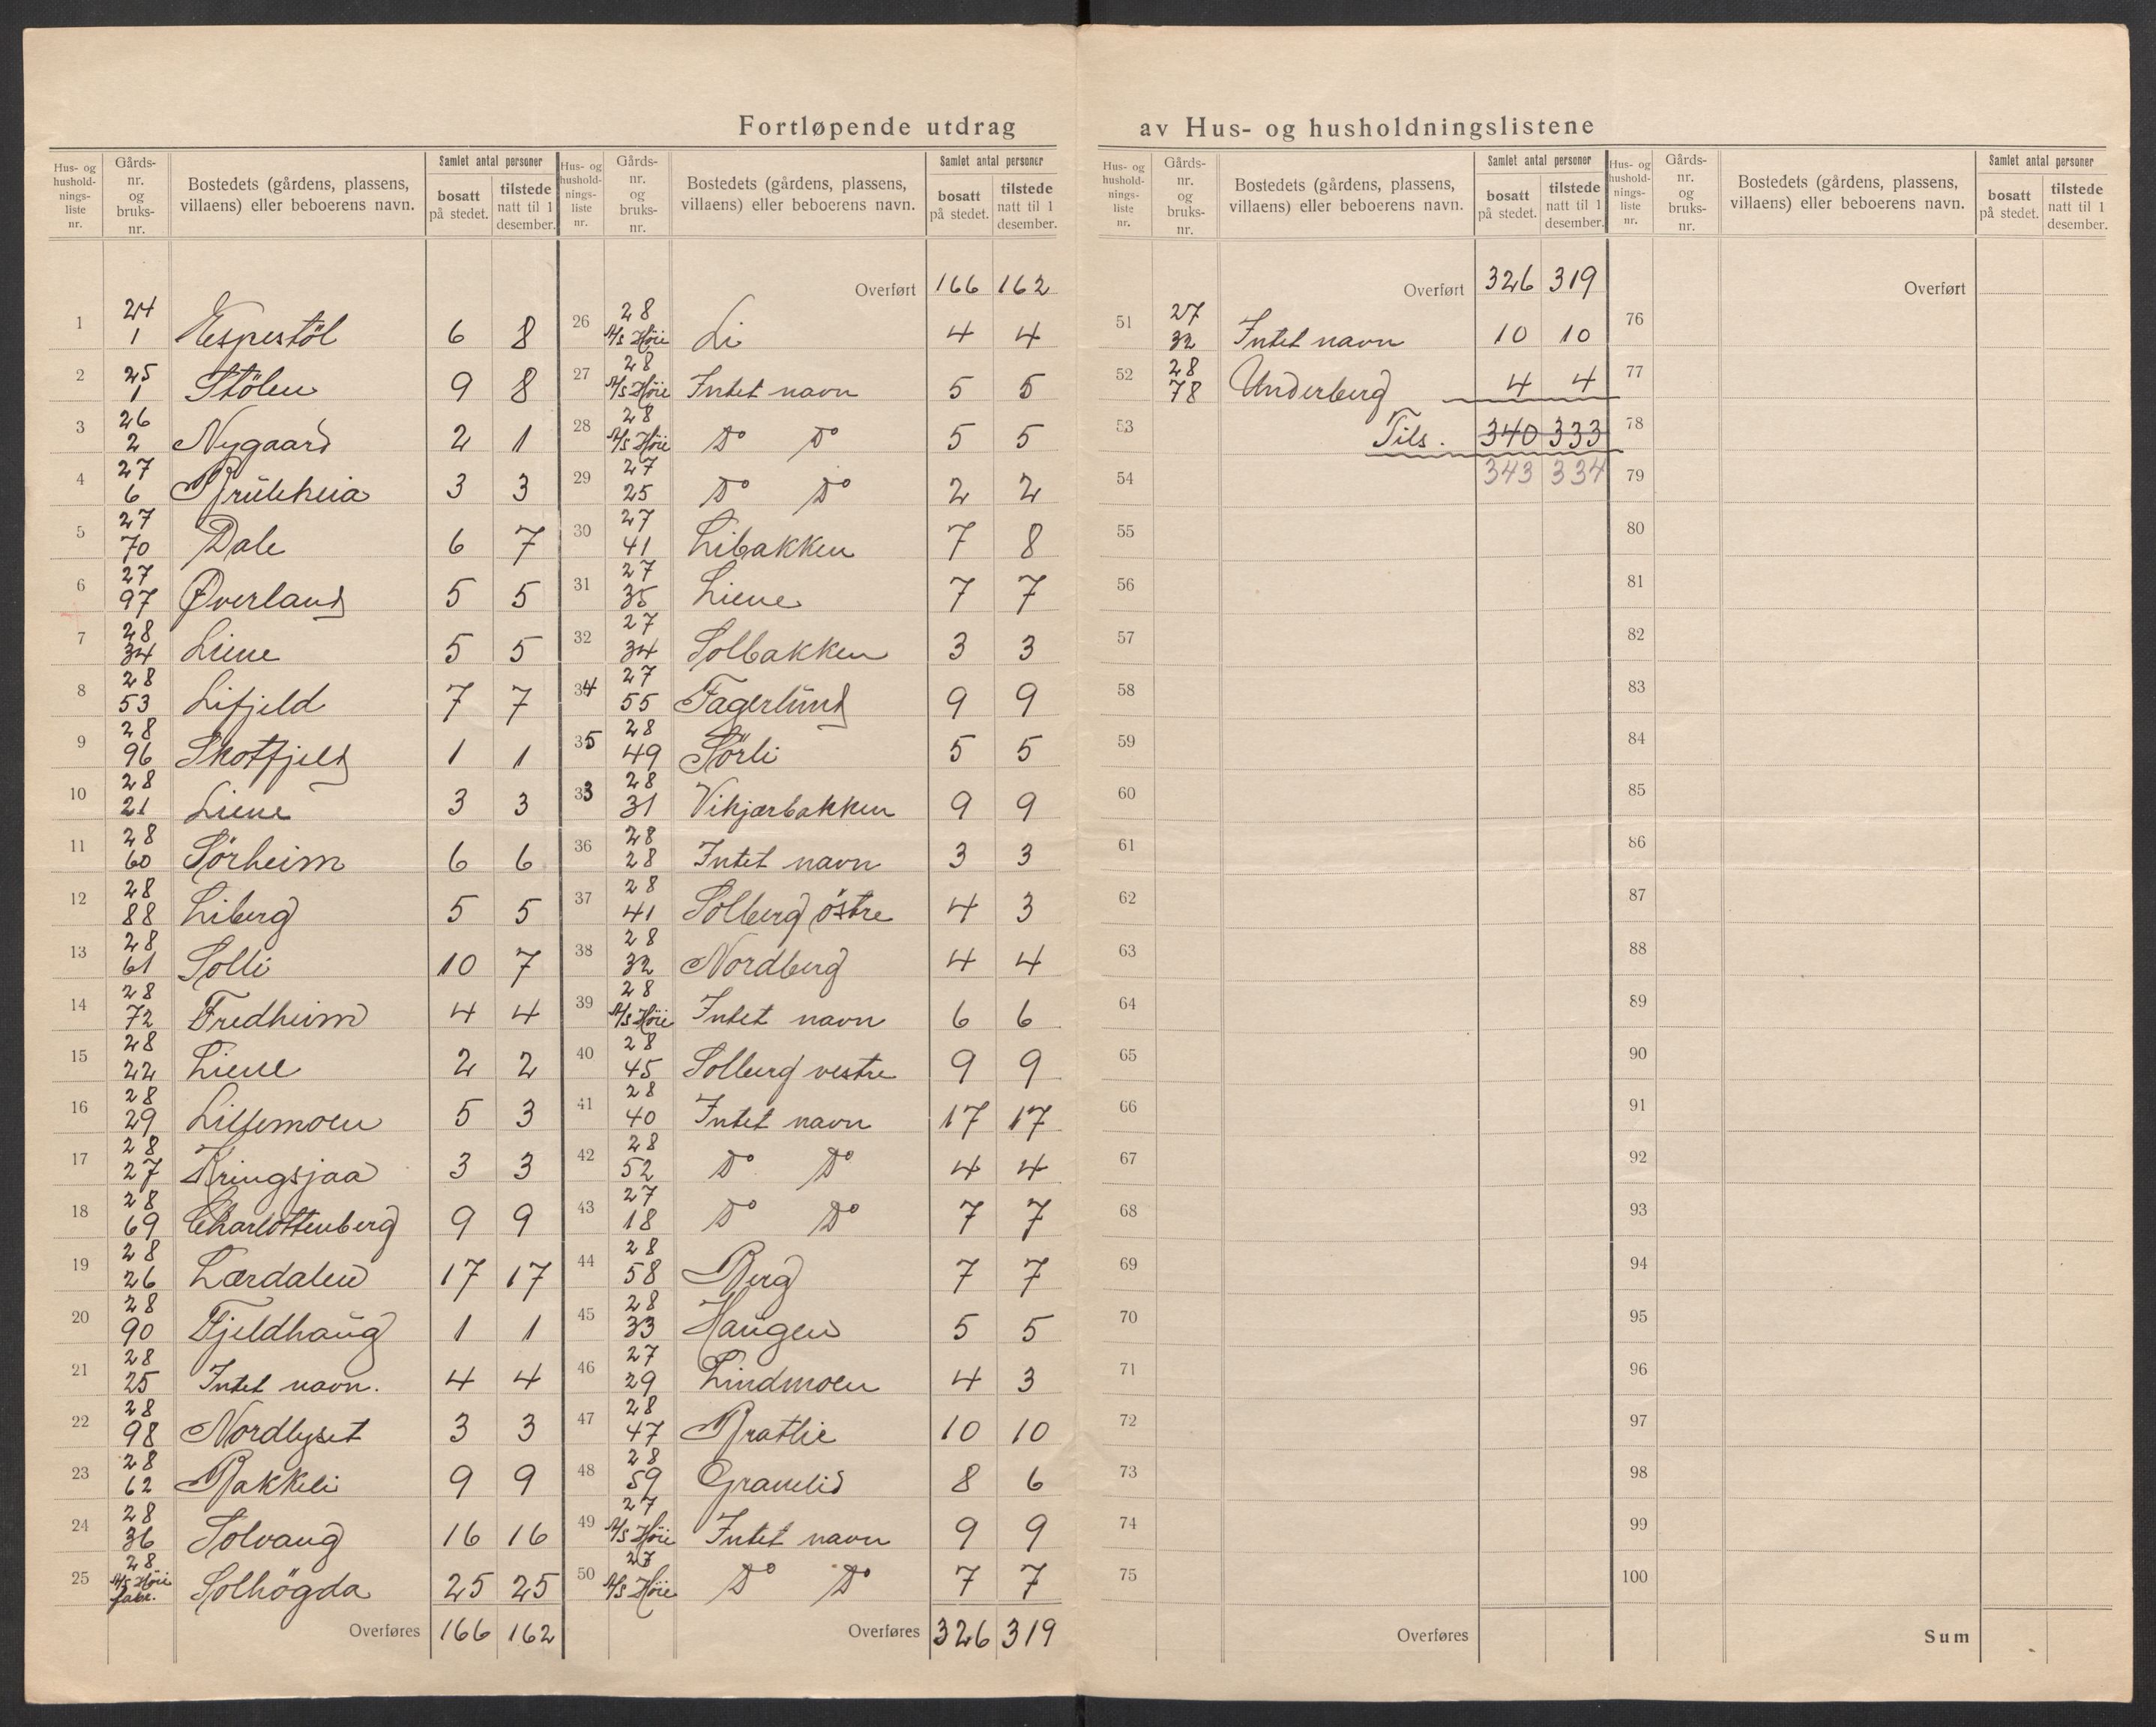 Fortløpende utdrag av Hus- og husholdningslistene
Hus- og hushold-nings-liste nr. | Gårds-nr. og bruks-nr. | Bostedets (gårdens, plassens, villaens) eller beboerens navn. | Samlet antal personer | bosatt på stedet. | tilstede natt til 1 desember.
1 24 1 Espestöl 6 8
2 25 1 Stölen 9 8
3 26 2 Nygaard 2 1
4 27 6 Bruleheia 3 3
5 27 70 Dale 6 7
6 27 97 Øverland 5 5
7 28 34 Liene 5 5
8 28 53 Lifjeld 7 7
9 28 96 Skotfjeld 1 1
10 28 21 Liene 3 3
11 28 60 Sörheim 6 6
12 28 88 Liberg 5 5
13 28 61 Solli 10 7
14 28 72 Fredheim 4 4
15 28 22 Liene 2 2
16 28 29 Lillemoen 5 3
17 28 27 Kringsjaa 3 3
18 28 69 Charlottenberg 9 9
19 28 26 Lærdalen 17 17
20 28 90 Fjeldhaug 1 1
21 28 25 Intet navn. 4 4
22 28 98 Nordlyset 3 3
23 28 62 Bakkeli 9 9
24 28 36 Solvang 16 16
25 28 A/s Höie fabr. Solhögda 25 25
Overføres 166 162
Hus- og hushold-nings-liste nr. | Gårds-nr. og bruks-nr. | Bostedets (gårdens, plassens, villaens) eller beboerens navn. | Samlet antal personer | bosatt på stedet. | tilstede natt til 1 desember.
Overført 166 162
26 28 A/s Höie Li 4 4
27 28 A/s Höie Intet navn 5 5
28 28 A/s Höie Do Do 5 5
29 27 25 Do Do 2 2
30 27 41 Libakken 7 8
31 27 35 Liene 7 7
32 27 34 Solbakken 3 3
34 27 55 Fagerlund 9 9
35 28 49 Sörli 5 5
33 28 31 Vikjærbakken 9 9
36 28 28 Intet navn 3 3
37 28 41 Solberg östre 4 3
38 28 32 Nordberg 4 4
39 28 A/s Höie Intet navn 6 6
40 28 45 Solberg vestre 9 9
41 28 40 Intet navn 17 17
42 28 52 Do Do 4 4
43 27 18 Do Do 7 7
44 28 58 Berg 7 7
45 28 33 Haugen 5 5
46 27 29 Lindmoen 4 3
47 28 47 Bratlie 10 10
48 28 59 Granlid 8 6
49 27 A/s Höie Intet navn 9 9
50 27 A/s Höie Do Do 7 7
Overføres 326 319
Hus- og hushold-nings-liste nr. | Gårds-nr. og bruks-nr. | Bostedets (gårdens, plassens, villaens) eller beboerens navn. | Samlet antal personer | bosatt på stedet. | tilstede natt til 1 desember.
Overført 326 319
51 27 32 Intet navn 10 10
52 28 78 Underberg 4 4
53 Tils. 340 333
54 343 334
55
56
57
58
59
60
61
62
63
64
65
66
67
68
69
70
71
72
73
74
75
Overføres
Hus- og hushold-nings-liste nr. | Gårds-nr. og bruks-nr. | Bostedets (gårdens, plassens, villaens) eller beboerens navn. | Samlet antal personer | bosatt på stedet. | tilstede natt til 1 desember.
Overført
76
77
78
79
80
81
82
83
84
85
86
87
88
89
90
91
92
93
94
95
96
97
98
99
100
Sum